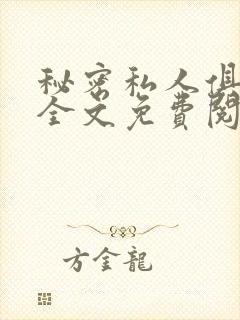 秘密私人俱
全文免費閱
方金龍